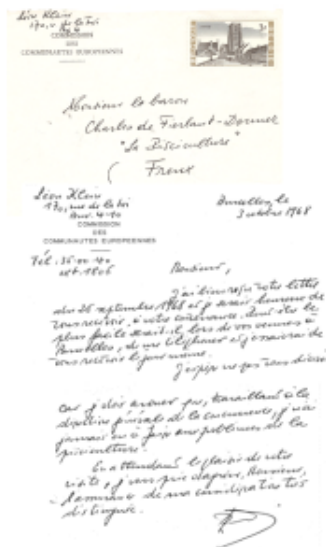 Léon Klein
170, r. de la loi
COMMISSION
DES
COMMUNAUTES EUROPEENNES
3F
Monsieur le baron
Charles de Fierlant-Dormer
"La Pisciculture"
Freux
Léon Klein
170, rue de la loi
Bur. 4-40
COMMISSION
DES
COMMUNAUTES EUROPEENNES
Tél: 35.00.40
ext. 1806
Bruxelles, le
3 octobre 1968
Monsieur,
J'ai bien reçu votre lettre
du 26 septembre 1968 et je serais heureux de
vous recevoir, à votre convenance. Peut-être le
plus facile serait-il, lors de vos venues à
Bruxelles, de me téléphoner et j'essaierai de
vous recevoir le jour même.
J'espère ne pas vous décevoir
car je dois avouer que, travaillant à la
direction générale de la concurrence, je n'ai
jamais eu à faire aux problèmes de la
pisciculture.
En attendant le plaisir de votre
visite, je vous prie d'agréer, Monsieur,
l'assurance de ma considération très
distinguée.